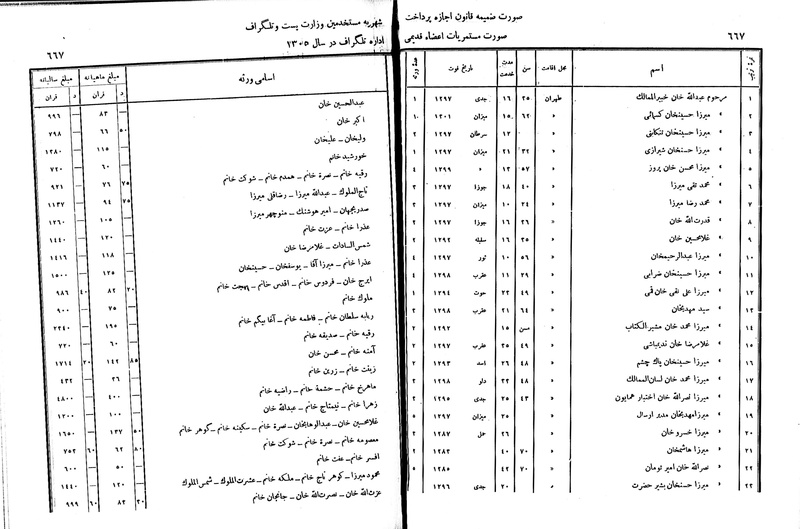 صورت ضمیمه قانون اجازه پرداخت
۶۶۷ صورت مستمریات اعضاء قدیمی
نمره ترتیب اسم محل اقامت سن مدت خدمت تاریخ فوت عدهٔ ورثه
۱ مرحوم عبدالله خان خبیرالممالك طهران ۳۵ ۱۶ جدی ۱۲۹۷ ۱
۲ » میرزا حسینخان کسمائی » ۶۲ ۱۵ میزان ۱۳۰۱ ۱
۳ » میرزا حسینخان تنکابنی » ۱۲ سرطان ۱۲۹۷ ۲
۴ » میرزا حسنخان شیرازی » ۳۲ ۲۱ میزان ۱۲۹۷ ۱
۵ » میرزا محسن خان پروز » ۵۷ ۱۲ » ۱۲۹۹ ۴
۶ » محمد تقی میرزا » ۴۰ ۱۸ جوزا ۱۲۹۷ ۳
۷ » محمد رضا میرزا » ۲۴ ۱۰ میزان ۱۲۹۷ ۳
۸ » قدرت الله خان » ۲۶ ۱۶ جوزا ۱۲۹۷ ۲
۹ » غلامحسین خان » ۳۵ ۱۶ سنبله ۱۲۹۲ ۲
۱۰ » میرزا عبدالرحیمخان » ۵۶ ۱۰ ثور ۱۲۹۷ ۴
۱۱ » میرزا حسینخان ضرابی » ۲۹ ۱۱ عقرب ۱۲۹۸ ۴
۱۲ » میرزا علی نقی خان قمی » ۴۹ ۲۲ حوت ۱۲۹۴ ۱
۱۳ » سید مهدیخان » ۶۴ ۲۱ عقرب ۱۲۹۸
۱۴ » میرزا محمد خان مشیر الکتاب » مسن ۱۵ ۱۲۹۲ ۲
۱۵ » غلامرضا خان ندیمباشی » ۴۹ ۲۵ عقرب ۱۲۹۷ ۲
۱۶ » میرزا حسینخان پاك چشم » ۴۸ ۲۶ اسد ۱۲۹۳ ۲
۱۷ » میرزا محمد خان لسان الممالك » ۴۸ ۲۲ دلو ۱۲۹۸ ۲
۱۸ » میرزا نصرالله خان اختیار همایون » ۴۳ ۲۵ جدی ۱۲۹۵
۱۹ » میرزا مهدیخان مدیر ارسال » ۲۵ میزان ۱۲۹۷ ۵
۲۰ » میرزا خسرو خان » ۲۶ حمل ۱۲۸۷ ۳
۲۱ » میرزا هاشمخان » ۷۰ ۴۰ ۱۲۸۳ ۲
۲۲ » نصرالله خان امیر تومان » ۷۰ ۴۲ ۱۲۸۵ ۵
۲۳ » میرزا حسنخان بشیر حضرت » ۲۰ جدی ۱۲۹۶
شهریه مستخدمین وزارت پست و تلگراف
اداره تلگراف در سال ۱۳۰۵ ۶۶۷
اسامی ورثه مبلغ ماهیانه مبلغ سالیانه
د قران د قران
عبدالحسین خان ۸۳ ۹۹۶
اکبر خان ۵۰ ۶۶ ۷۹۸
ولیخان ـ علیخان ۱۱۵ ۱۳۸۰
خورشید خانم ۶۰ ۷۲۰
رقیه خانم ـ نصرة خانم ـ همدم خانم ـ شوکت خانم ۷۵ ۷۶ ۹۲۱
تاج الملوك ـ عبدالله میرزا ـ رضاقلی میرزا ۷۵ ۹۴ ۱۱۳۷
صدریجهان ـ امیر هوشنك ـ منوچهر میرزا ۱۰۵ ۱۲۶۰
عذرا خانم ـ عزت خانم ۱۲۰ ۱۴۴۰
شمس السادات ـ غلامرضا خان ۱۱۸ ۱۴۱۶
عذرا خانم ـ میرزا آقا ـ یوسفخان ـ حسینخان ۱۲۵ ۱۵۰۰
ایرج خان ـ فردوس خانم ـ اقدس خانم ـ بهجت خانم ۲۰ ۸۲ ۴۰ ۹۸۶
ملوك خانم ۷۵ ۹۰۰
ربابه سلطان خانم ـ فاطمه خانم ـ آغا بیگم خانم ۱۹۵ ۲۳۴۰
رقیه خانم ـ صدیقه خانم ۶۰ ۷۲۰
آمنه خانم ـ محسن خان ۸۵ ۱۴۲ ۲۰ ۱۷۱۴
زینت خانم ـ زرین خانم ۳۶ ۴۳۲
ماهرخ خانم ـ حشمة خانم ـ راضیه خانم ۴۰۰ ۴۸۰۰
زهرا خانم ـ نیمتاج خانم ـ عبدالله خان ۱۰۰ ۱۲۰۰
غلامحسین خان ـ عبدالوهابخان ـ نصرة خانم ـ سکینه خانم ـ گوهر خانم ۵۰ ۱۳۷ ۱۶۵۰
معصومه خانم ـ نصرة خانم ـ شوکت خانم ۸۰ ۶۲ ۶۰ ۷۵۳
افسر خانم ـ عفت خانم ۵۰ ۶۰۰
محمود میرزا ـ گوهر تاج خانم ـ ملکه خانم ـ عشرت الملوك ـ شمس الملوك ۱۲۰ ۱۴۴۰
عزت الله خان ـ نصرت الله خان ـ جانجان خانم ۳۰ ۸۳ ۶۰ ۹۹۹